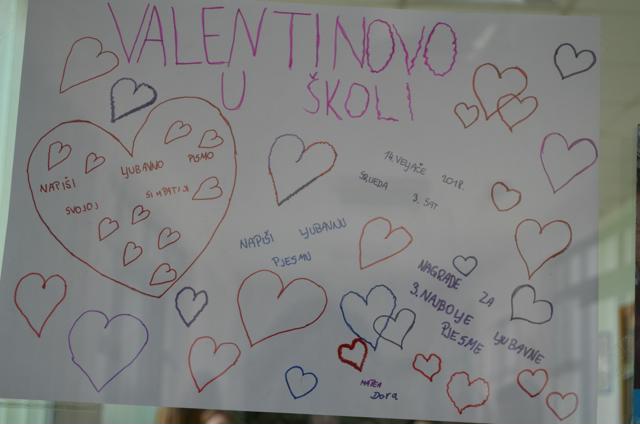 VALENTINOVO
U ŠKOLI
NAPIŠI LJUBAVNO PISMO
SVOJOJ SIMPATIJI
14. VELJAČE 2018.
SRIJEDA 3. SAT
NAPIŠI LJUBAVNU
PJESMU
NAGRADE ZA
3. NAJBOLJE LJUBAVNE
PJESME
MATEA
Dora